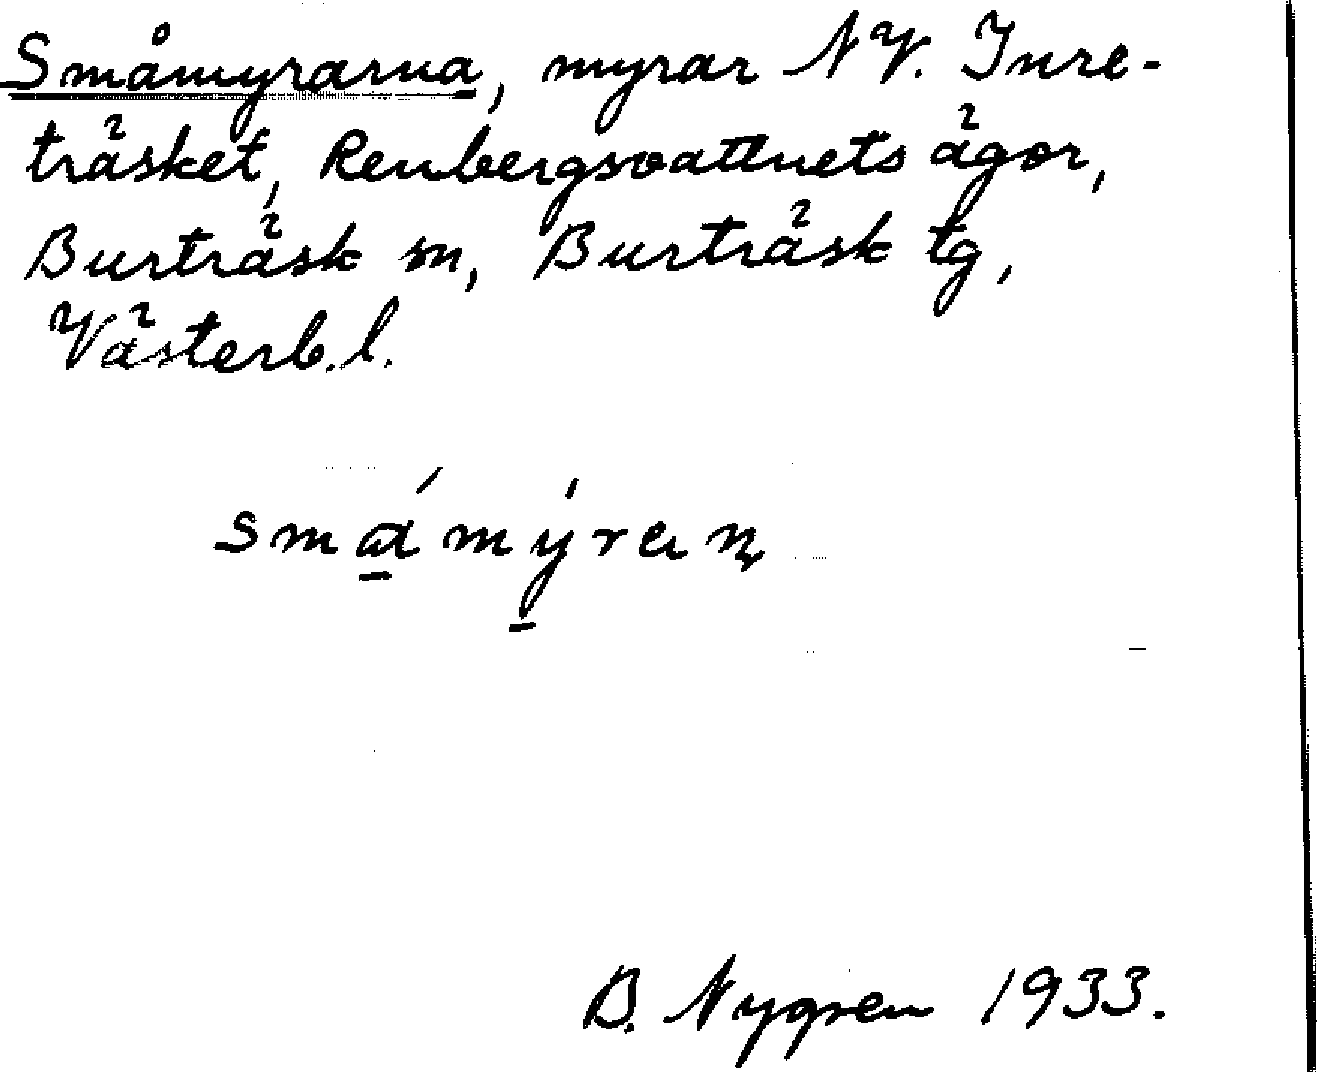 Småmyrarna, myrar NV. Inre-
träsket, Renbergsvattnets ägor,
Burträsk sn, Burträsk tg,
Västerb. l.
B. Nygren 1933.